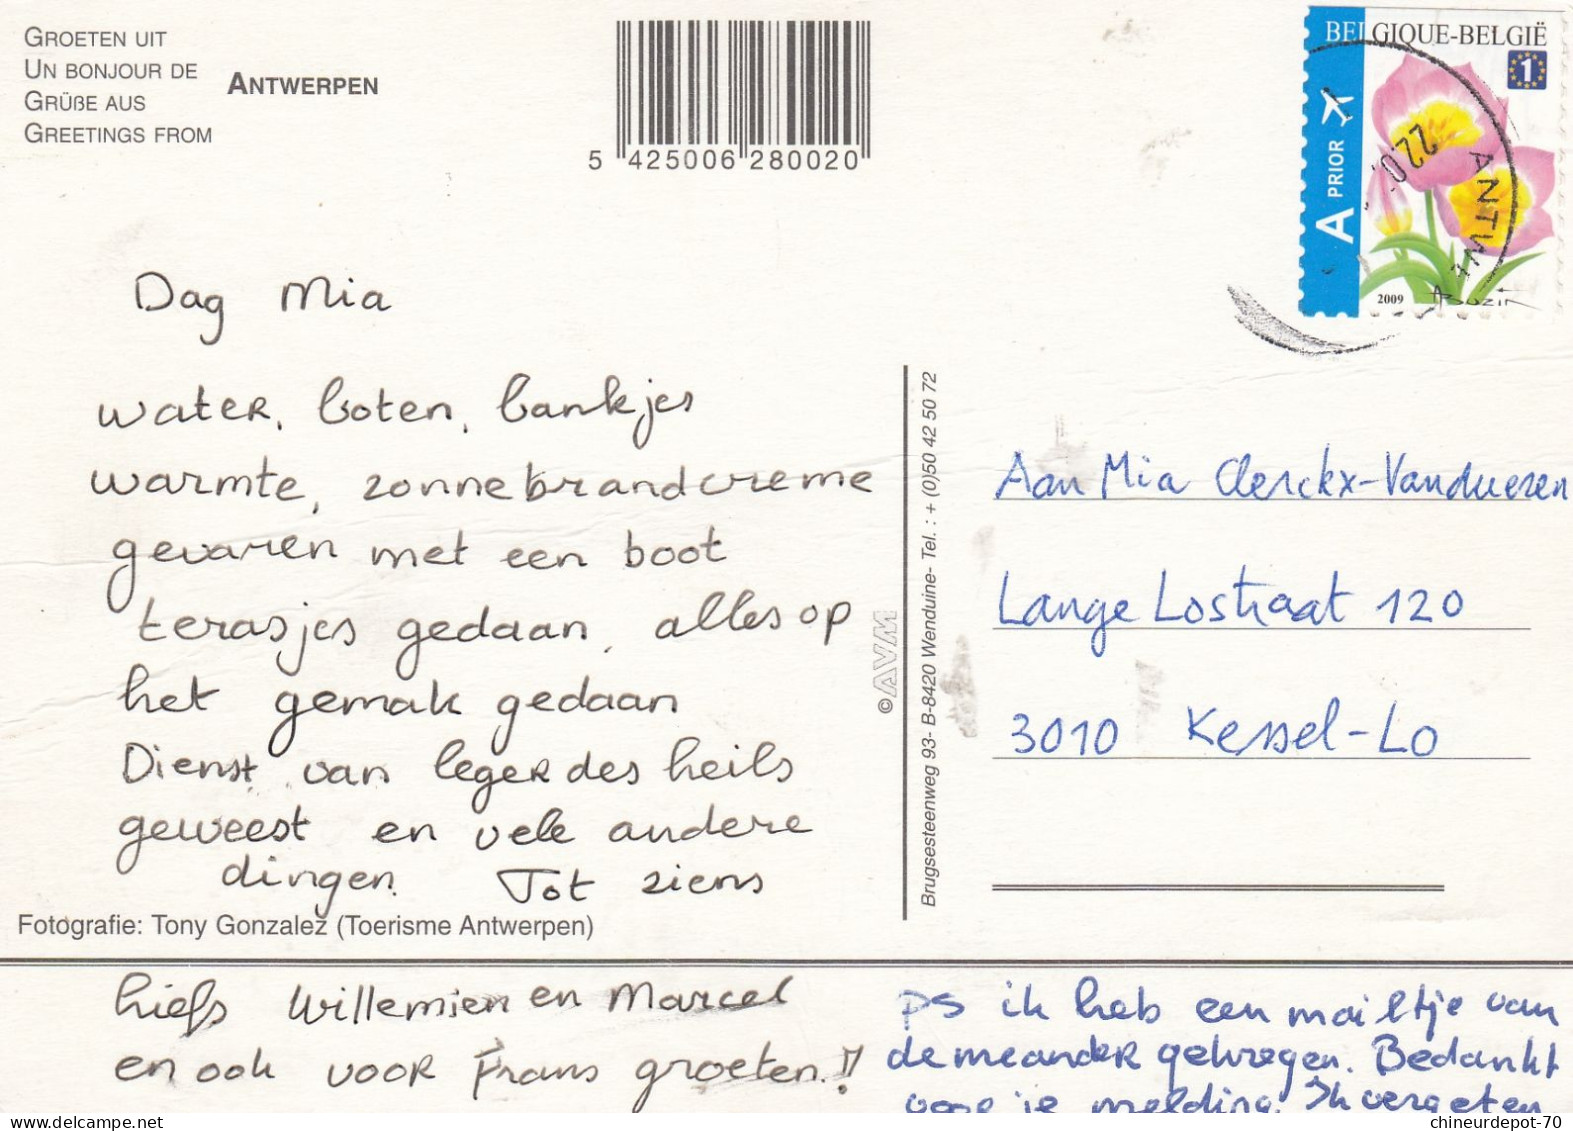 GROETEN UIT
UN BONJOUR DE
GRÜßE AUS
GREETINGS FROM
ANTWERPEN
5 425006 280020
BELGIQUE-BELGIË
1
A PRIOR
22.0
ANTW
2009
Buzin
Dag Mia
water, boten, bankjes
warmte, zonnebrandcreme
gevaren met een boot
terasjes gedaan, alles op
het gemak gedaan
Dienst van leger des heils
geweest en vele andere
dingen. Tot ziens
Fotografie: Tony Gonzalez (Toerisme Antwerpen)
liefs Willemien en Marcel
en ook voor Frans groeten.!!
©AVM
Brugsesteenweg 93- B-8420 Wenduine- Tel. : + (0)50 42 50 72
Aan Mia Clerckx-Vandueren
Lange Lostraat 120
3010 Kessel-Lo
PS ik heb een mailtje van
de meander gekregen. Bedankt
voor je melding. Ik vergeten
chineurdepot-70